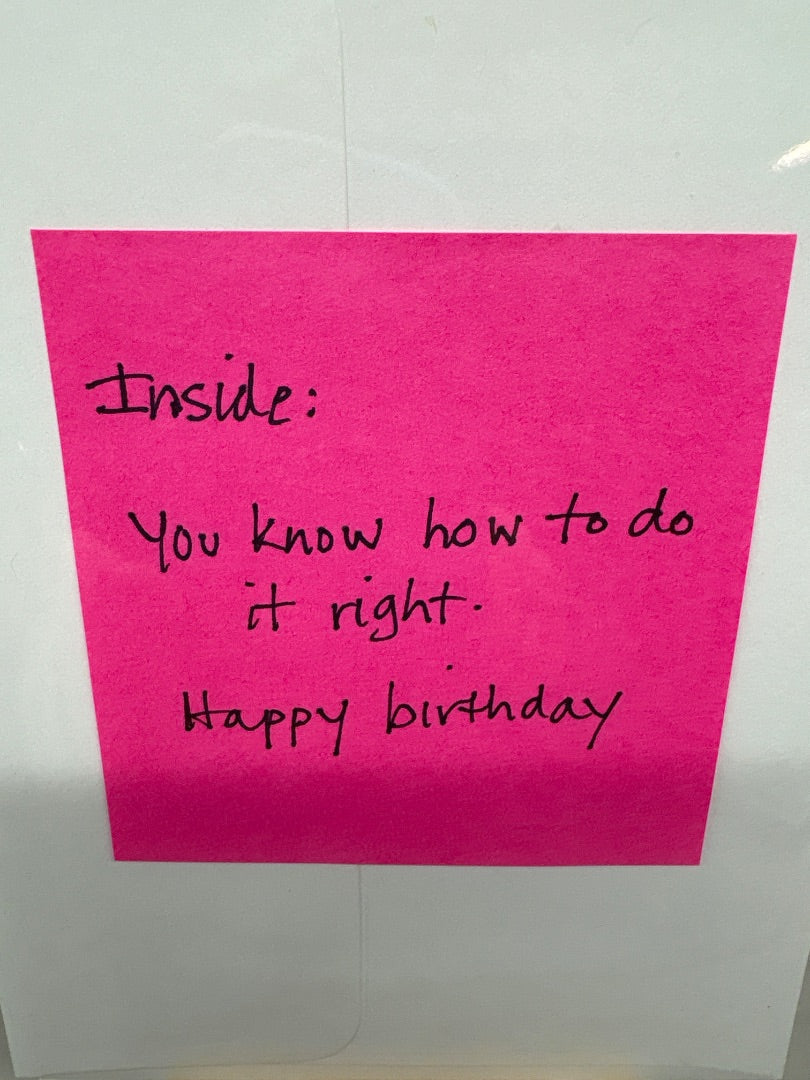 Inside:
You know how to do
it right.
Happy birthday